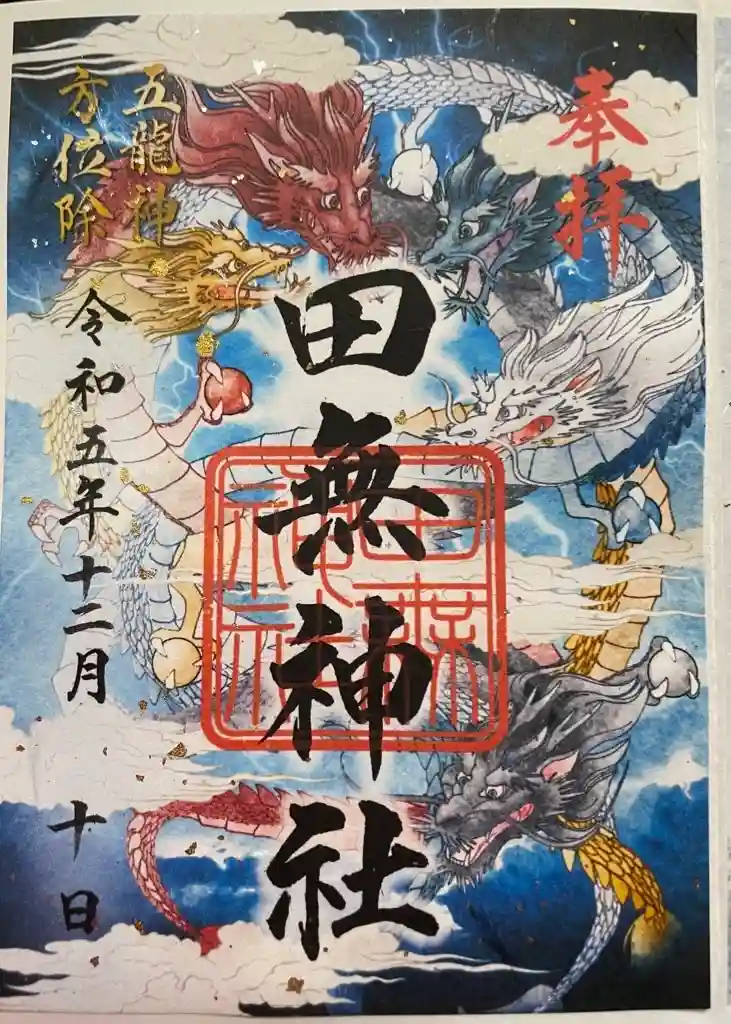 奉拝
田無神社
田無神社
五龍神
方位除
令和五年十二月十日